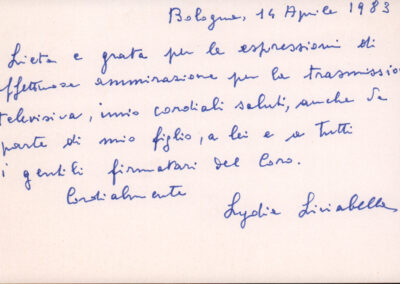 Bologna, 14 Aprile 1983
Lieta e grata per le espressioni di
affettuosa ammirazione per la trasmissio
televisiva, invio cordiali saluti, anche da
parte di mio figlio, a lei e a tutti
i gentili firmatari del Coro.
Cordialmente
Lydia Liviabella